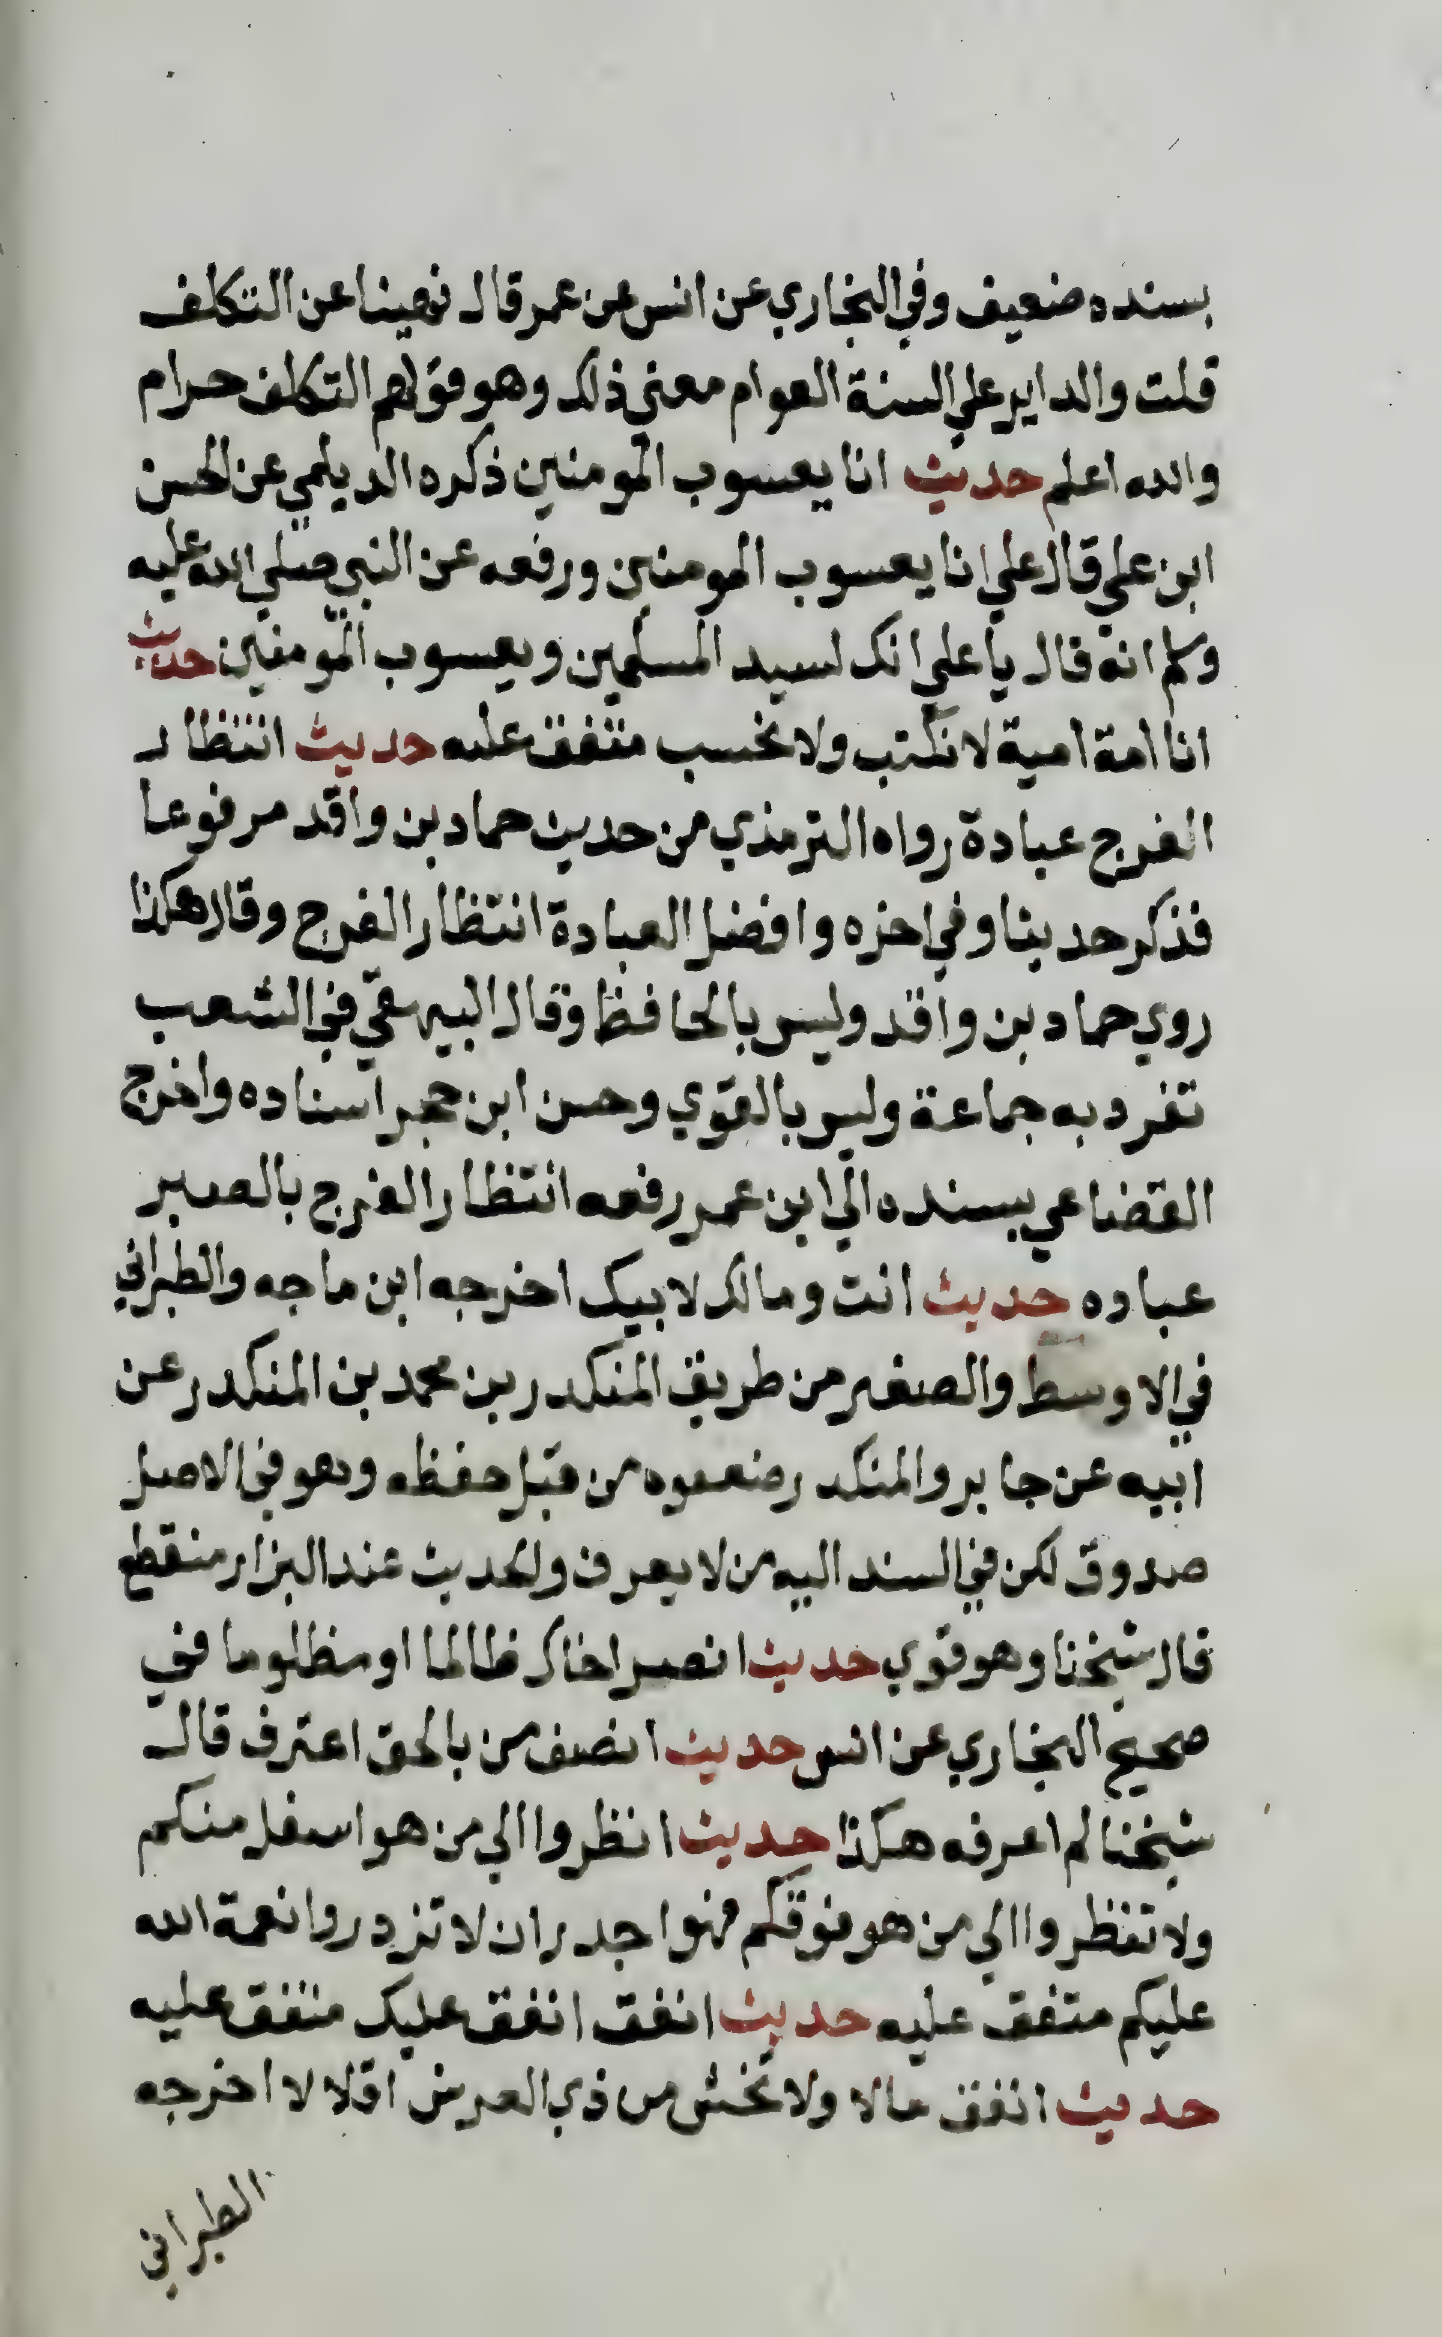 بسنده ضعيف وفي البخاري عن انس عن عمر قال نهينا عن التكلف
قلت والداير على السنة العوام معنى ذلك وهو قولهم التكلف حرام
والله اعلم حديث انا يعسوب المومنين ذكره الديلمي عن الحسن
ابن علي قال علي انا يعسوب المومنين ورفعه عن النبي صلى الله عليه
وسلم انه قال يا علي انك لسيد المسلمين ويعسوب المومنين حديث
انا امة امية لا نكتب ولا نحسب متفق عليه حديث انتظار
الفرج عبادة رواه الترمذي من حديث حماد بن واقد مرفوعا
فذكر حديثا وفي اخره وافضل العبادة انتظار الفرج وقال هكذا
روي حماد بن واقد وليس بالحافظ وقال البيهقي في الشعب
تفرد به جماعة وليس بالقوي وحسن ابن حجر اسناده واخرج
القضاعي بسنده الي ابن عمر رفعه انتظار الفرج بالصبر
عباده حديث انت ومالك لابيك اخرجه ابن ماجه والطبراني
في الاوسط والصغير من طريق المنكدر بن محمد بن المنكدر عن
ابيه عن جابر والمنكدر ضعفوه من قبل حفظه وهو في الاصل
صدوق لكن في السند اليه من لا يعرف والحديث عند البزار منقطع
قال شيخنا وهو قوي حديث انصر اخاك ظالما او مظلوما في
صحيح البخاري عن انس حديث انصف من بالحق اعترف قال
شيخنا لم اعرفه هكذا حديث انظروا الي من هو اسفل منكم
ولا تنظروا الي من هو فوقكم فهو اجدر ان لا تزدروا نعمة الله
عليكم متفق عليه حديث انفق انفق عليك متفق عليه
حديث انفق مالا ولا تخش من ذي العرش اقلالا اخرجه
الطبراني